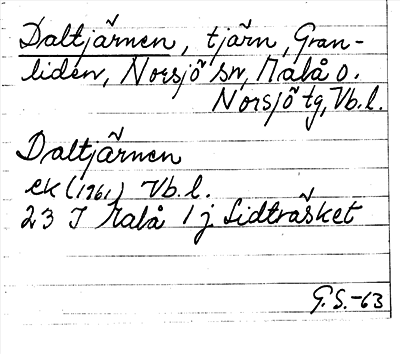 Daltjärnen, tjärn, Gran-
liden, Norsjö sn, Malå o.
Norsjö tg, Vb.l.
Daltjärnen
ek (1961) Vb.l.
23 J Malå 1 j Lidträsket
G.S.-63